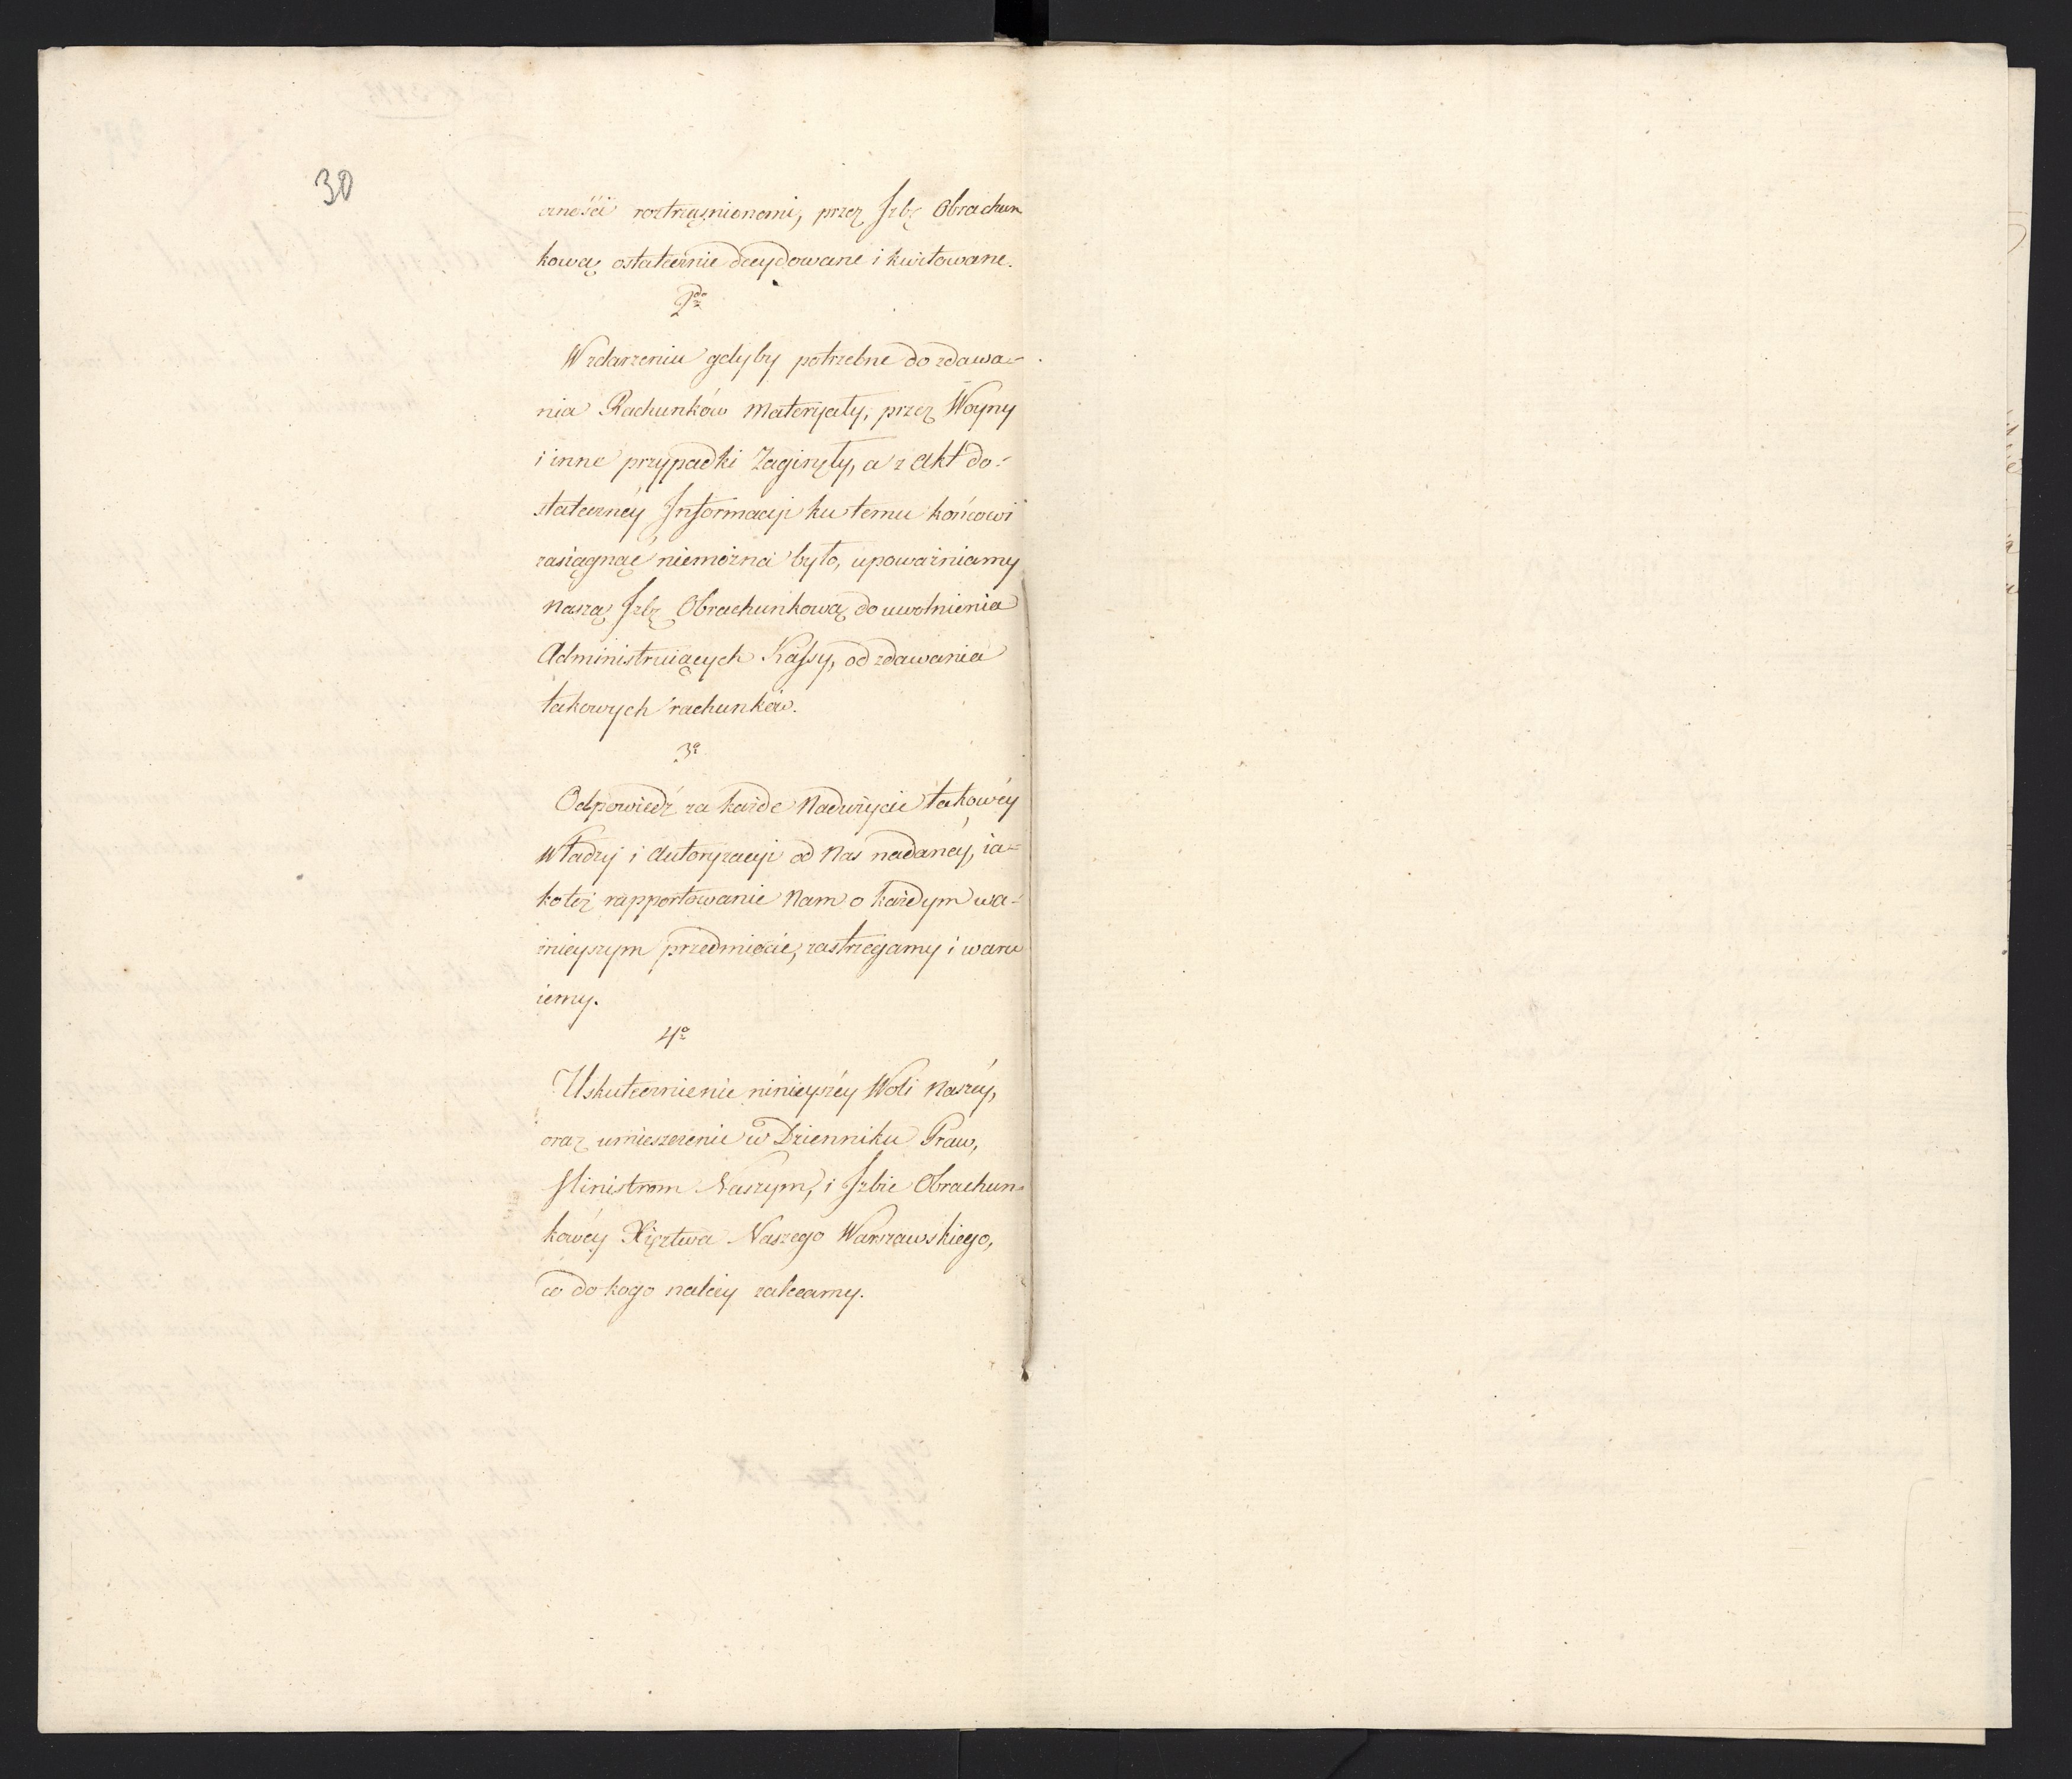 30
czności roztrząśnionemi, przez Izbę Obrachun
kową ostatecznie decydowane i kwitowane.
2do
W zdarzeniu gdyby potrzebne do zdawa-
nia Rachunków Materyały, przez Woyny
i inne przypadki Zaginęły, a z Akt do-
stateczney Informacyi ku temu końcowi
zasiągnąć niemożna było, upoważniamy
Naszą Izbę Obrachunkową do uwolnienia
Administruiących Kassy, od zdawania
takowych rachunków.
3o
Odpowiedź za każde Nadużycie takowéy
Władzy i Autoryzacyi od Nas nadanéy, ia-
koteż rapportowanie Nam o każdym wa-
żnieyszym przedmiocie, zastrzegamy i waru
iemy.
4o
Uskutecznienie ninieyszéy Woli Naszéy,
oraz umieszczenie w Dzienniku Praw,
Ministrom Naszym, i Izbie Obrachun-
kowéy Xięztwa Naszego Warszawskiego,
co do kogo należy zalecamy.